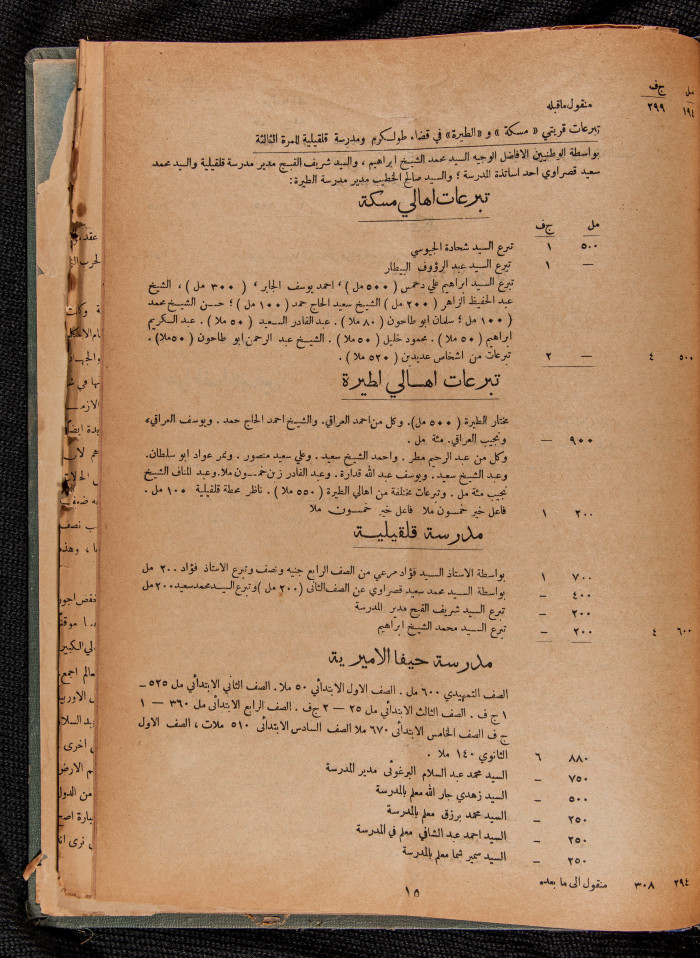 مل ج ف
منقول ماقبله ٢٩٩ ١٩٤
تبرعات قريتي «مسكة» و «الطيرة» في قضاء طولكرم ومدرسة قلقيلية للمرة الثالثة
بواسطة الوطنيين الافاضل الوجيه السيد محمد الشيخ ابراهيم ، والسيد شريف القبج مدير مدرسة قلقيلية والسيد محمد
سعيد قصراوي احد اساتذة المدرسة ؛ والسيد صالح الخطيب مدير مدرسة الطيرة :
تبرعات اهالي مسكة
ج ف مل
تبرع السيد شحادة الجيوسي ١ ٥٠٠
تبرع السيد عبد الرؤوف البيطار ١ —
تبرع السيد ابراهيم علي دحمس (٥٠٠ مل) ، احمد يوسف الجابر ، (٣٠٠ مل) ، الشيخ
عبد الحفيظ الزاهر (٢٠٠ مل) الشيخ سعيد الحاج حمد (١٠٠ مل) ؛ حسن الشيخ محمد
(١٠٠ مل ؛ سلمان ابو طاحون (٨٠ ملا) . عبد القادر السعيد (٥٠ ملا) . عبد الكريم
ابراهيم (٥٠ ملا) . محمود خليل (٥٠ ملا) . الشيخ عبد الرحمن ابو طاحون (٥٠ ملا) .
تبرعات من اشخاص عديدين (٥٢٠ ملا) . ٢ — ٤ ٥٠٠
تبرعات اهالي اطيرة
مختار الطيرة (٥٠٠ مل). وكل من احمد العراقي. والشيخ احمد الحاج حمد . ويوسف العراقي،
ونجيب العراقي. مئة مل . — ٩٠٠
وكل من عبد الرحيم مطر . واحمد الشيخ سعيد . وعلي سعيد منصور . وعمر عواد ابو سلطان.
وعبد الشيخ سعيد . ويوسف عبد الله قدارة . وعبد القادر زبن خمسون ملا. وعبد المناف الشيخ
نجيب مئة مل . وتبرعات مختلفة من اهالي الطيرة (٥٥٠ ملا) . ناظر محطة قلقيلية ١٠٠ مل .
فاعل خير خمسون ملا فاعل خير خمسون ملا ١ ٢٠٠
مدرسة قلقيلية
بواسطة الاستاذ السيد فؤاد مرعي من الصف الرابع جنيه ونصف وتبرع الاستاذ فؤاد ٢٠٠ مل ١ ٧٠٠
بواسطة السيد محمد سعيد قصراوي عن الصف الثاني (٢٠٠ مل) وتبرع السيد محمد سعيد ٢٠٠ مل – ٤٠٠
تبرع السيد شريف القبج مدير المدرسة – ٢٠٠
تبرع السيد محمد الشيخ ابراهيم – ٢٠٠ ٤ ٦٠٠
مدرسة حيفا الاميرية
الصف التمهيدي ٦٠٠ مل . الصف الاول الابتدائي ٥٠ ملا. الصف الثاني الابتدائي مل ٥٢٥ –
١ ج ف . الصف الثالث الابتدائي مل ٢٥ — ٢ ج ف . الصف الرابع الابتدائي مل ٣٦٠ — ١
ج ف الصف الخامس الابتدائي ٦٧٠ ملا الصف السادس الابتدائي ٥١٠ ملات ، الصف الاول
الثانوي ١٤٠ ملا . ٦ ٨٨٠
السيد محمد عبد السلام البرغوثي مدير المدرسة – ٧٥٠
السيد زهدي جار الله معلم بالمدرسة – ٥٠٠
السيد محمد برزق معلم بالمدرسة – ٢٥٠
السيد احمد عبد الشافي معلم في المدرسة – ٢٥٠
السيد سمير شما معلم بالمدرسة – ٢٥٠
منقول الى ما بعده ٣٠٨ ٢٩٤
١٥